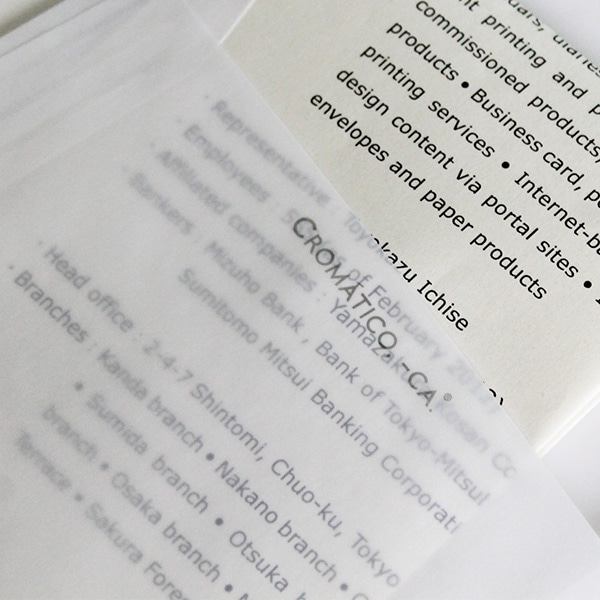 printing and
commissioned products,
products • Business card,
printing services • Internet-ba
design content via portal sites •
envelopes and paper products
· Representative Toyokazu Ichise
· Employees of February
· Affiliated companies : Yamazak Kosan Co
Bankers : Mizuho Bank , Bank of Tokyo-Mitsubi
Sumitomo Mitsui Banking Corporati
· Head office : 2-4-7 Shintomi, Chuo-ku, Tokyo
· Branches : Kanda branch • Nakano branch •
• Sumida branch • Otsuka
branch • Osaka branch •
Terrace • Sakura Fores
CROMÁTICO, -CA.®